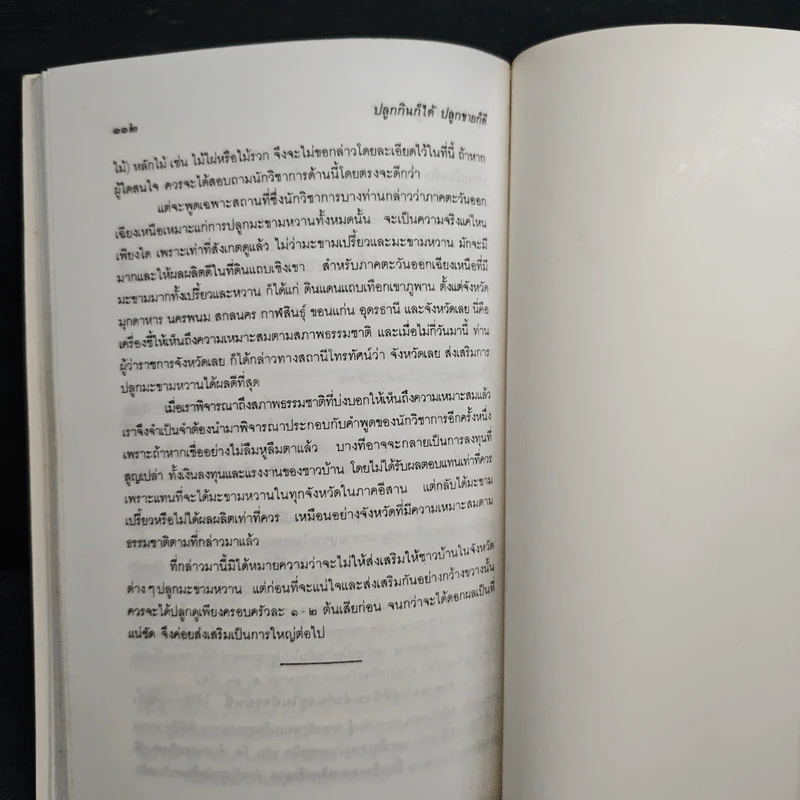 ปลูกกินก็ได้ ปลูกขายก็ดี
๑๑๒
ไม้) หลักไม้ เช่น ไม้ไผ่หรือไม้รวก จึงจะไม่ขอกล่าวโดยละเอียดไว้ในที่นี้ ถ้าหาก
ผู้ใดสนใจ ควรจะได้สอบถามนักวิชาการด้านนี้โดยตรงจะดีกว่า
แต่จะพูดเฉพาะสถานที่ซึ่งนักวิชาการบางท่านกล่าวว่าภาคตะวันออก
เฉียงเหนือเหมาะแก่การปลูกมะขามหวานทั้งหมดนั้น จะเป็นความจริงแค่ไหน
เพียงใด เพราะเท่าที่สังเกตดูแล้ว ไม่ว่ามะขามเปรี้ยวและมะขามหวาน มักจะมี
มากและให้ผลผลิตดีในที่ดินแถบเชิงเขา สำหรับภาคตะวันออกเฉียงเหนือที่มี
มะขามมากทั้งเปรี้ยวและหวาน ก็ได้แก่ ดินแดนแถบเทือกเขาภูพาน ตั้งแต่จังหวัด
มุกดาหาร นครพนม สกลนคร กาฬสินธุ์ ขอนแก่น อุดรธานี และจังหวัดเลย นี่คือ
เครื่องชี้ให้เห็นถึงความเหมาะสมตามสภาพธรรมชาติ และเมื่อไม่กี่วันมานี้ ท่าน
ผู้ว่าราชการจังหวัดเลย ก็ได้กล่าวทางสถานีโทรทัศน์ว่า จังหวัดเลย ส่งเสริมการ
ปลูกมะขามหวานได้ผลดีที่สุด
เมื่อเราพิจารณาถึงสภาพธรรมชาติที่บ่งบอกให้เห็นถึงความเหมาะสมแล้ว
เราจึงจำเป็นจำต้องนำมาพิจารณาประกอบกับคำพูดของนักวิชาการอีกครั้งหนึ่ง
เพราะถ้าหากเชื่ออย่างไม่ลืมหูลืมตาแล้ว บางทีอาจจะกลายเป็นการลงทุนที่
สูญเปล่า ทั้งเงินลงทุนและแรงงานของชาวบ้าน โดยไม่ได้รับผลตอบแทนเท่าที่ควร
เพราะแทนที่จะได้มะขามหวานในทุกจังหวัดในภาคอีสาน แต่กลับได้มะขาม
เปรี้ยวหรือไม่ได้ผลผลิตเท่าที่ควร เหมือนอย่างจังหวัดที่มีความเหมาะสมตาม
ธรรมชาติตามที่กล่าวมาแล้ว
ที่กล่าวมานี้มิได้หมายความว่าจะไม่ให้ส่งเสริมให้ชาวบ้านในจังหวัด
ต่าง ๆ ปลูกมะขามหวาน แต่ก่อนที่จะแน่ใจและส่งเสริมกันอย่างกว้างขวางนั้น
ควรจะได้ปลูกดูเพียงครอบครัวละ ๑-๒ ต้นเสียก่อน จนกว่าจะได้ดอกผลเป็นที่
แน่ชัด จึงค่อยส่งเสริมเป็นการใหญ่ต่อไป